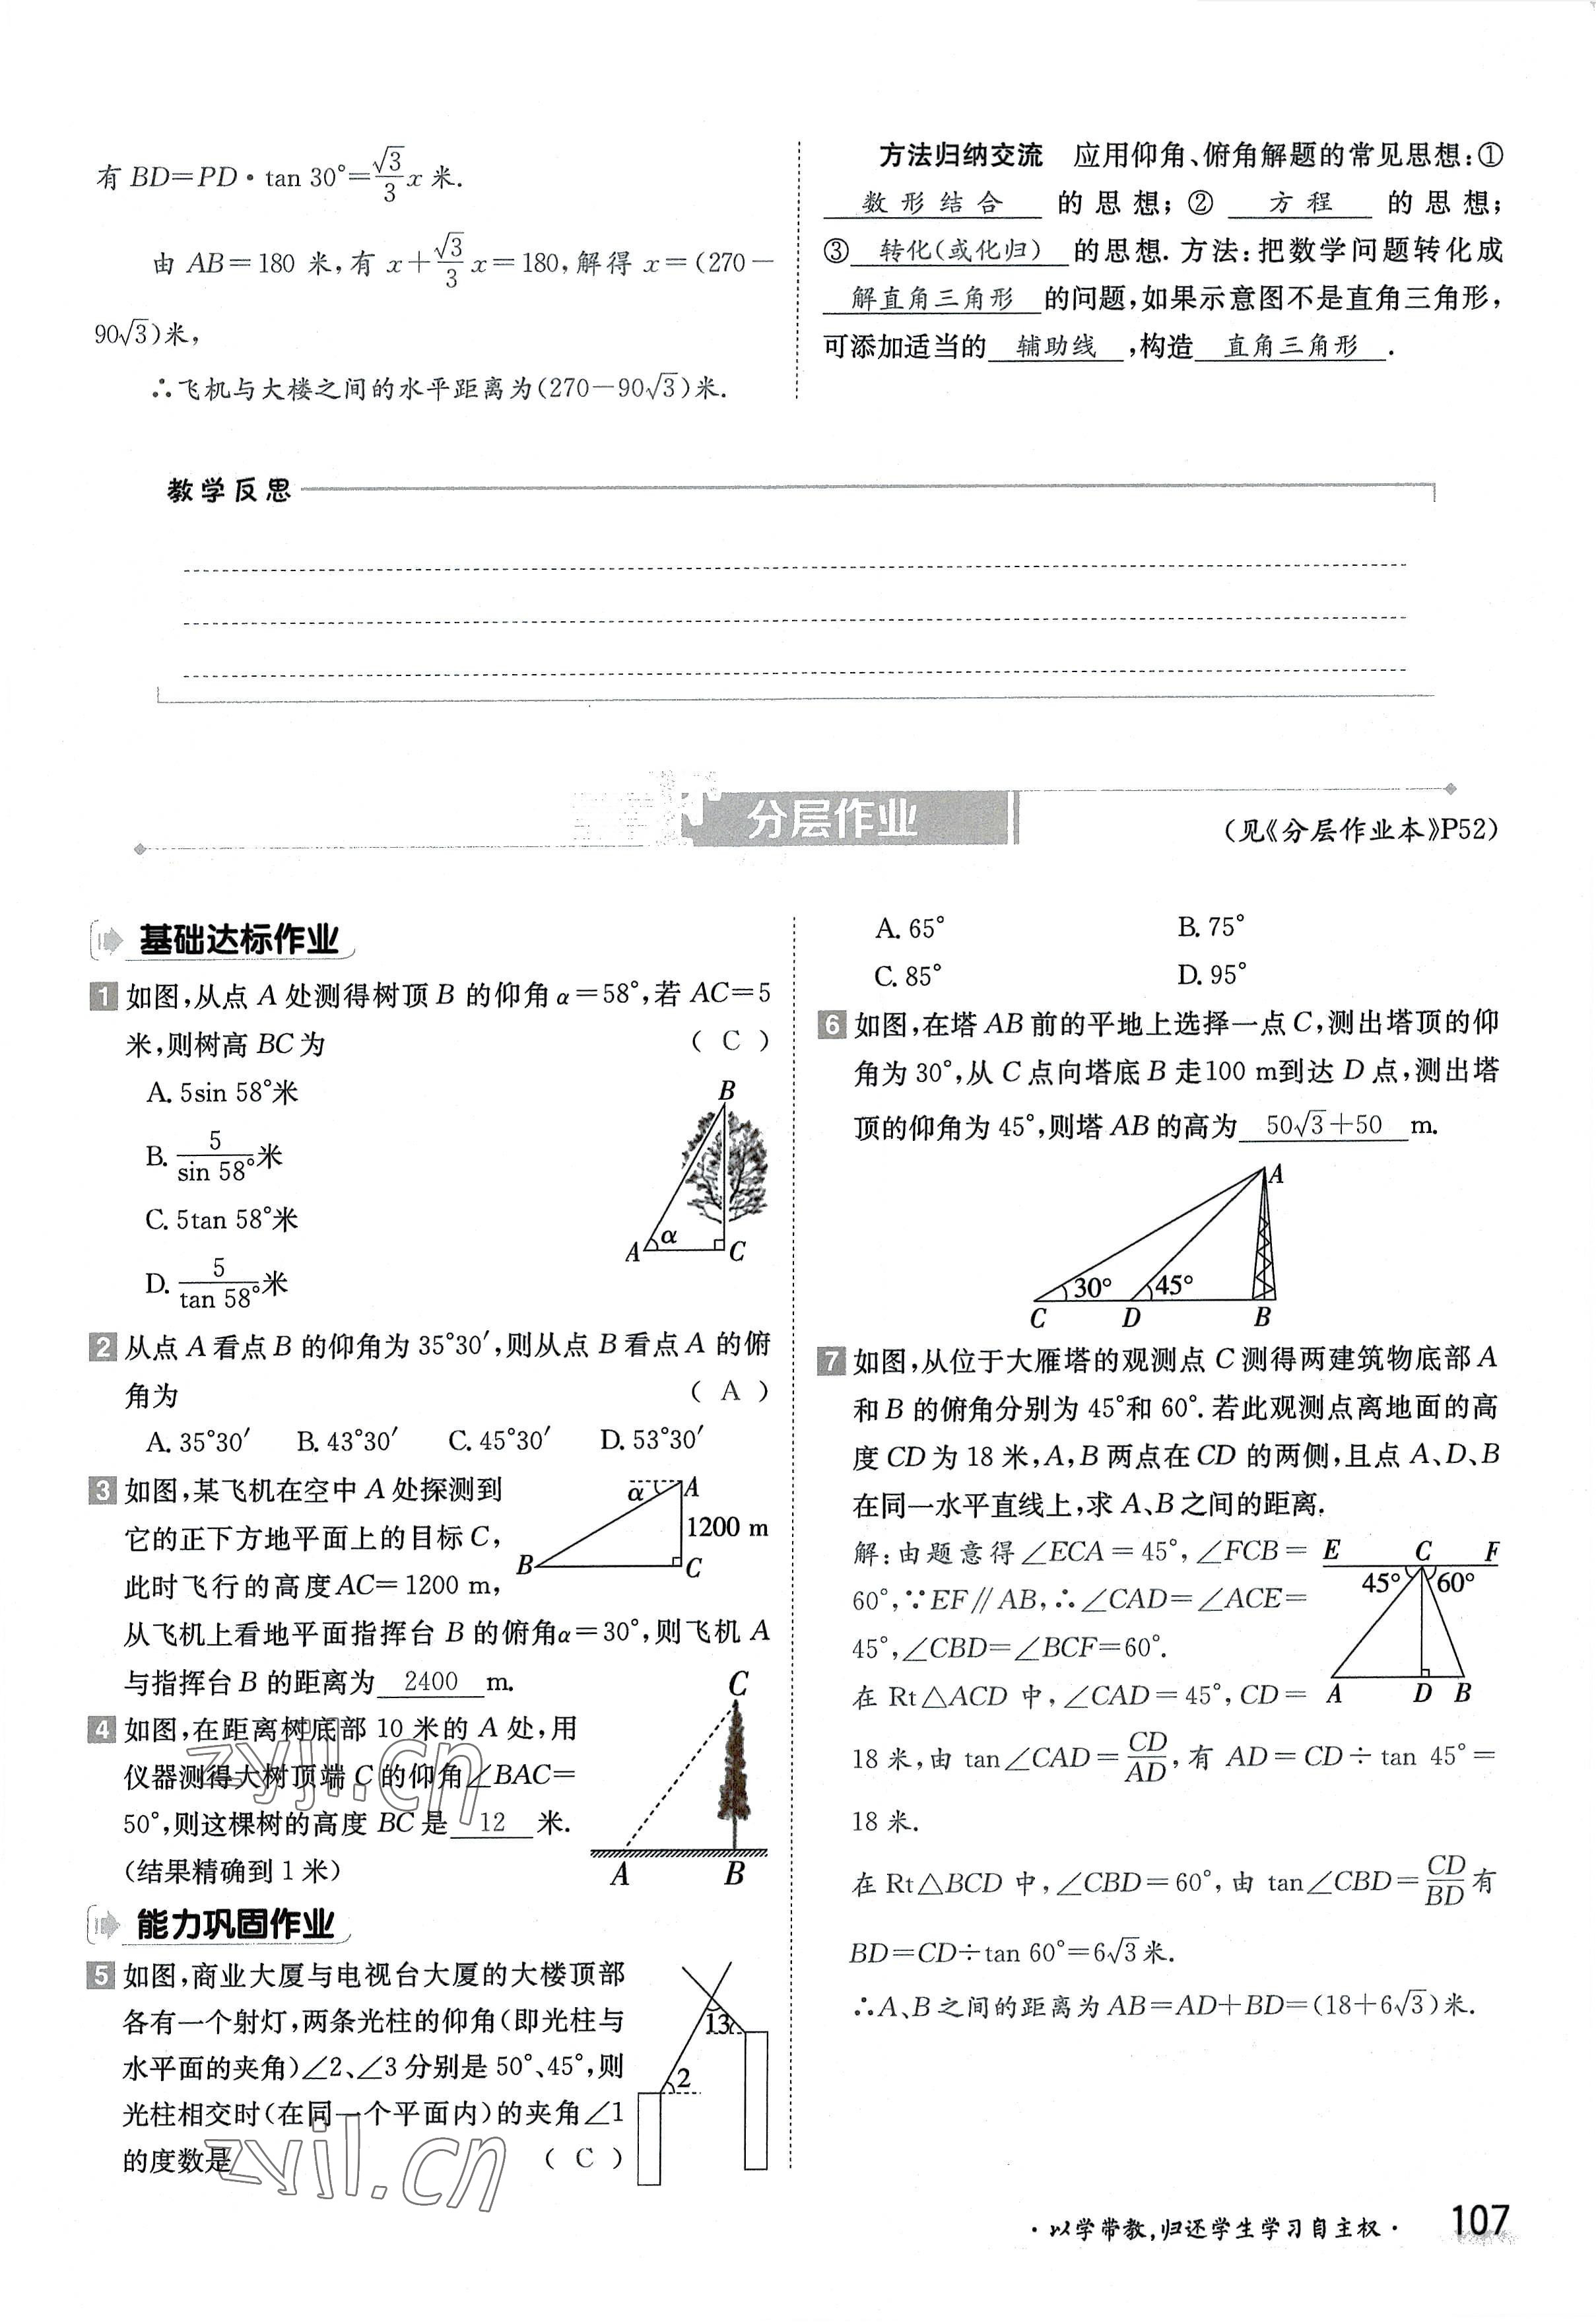 有 BD=PD·tan 30°=√3/3 x 米.
由 AB=180 米,有 x+√3/3 x=180,解得 x=(270-
90√3)米,
∴飞机与大楼之间的水平距离为(270-90√3)米.
方法归纳交流 应用仰角、俯角解题的常见思想:①
数形结合 的思想;② 方程 的思想;
③ 转化(或化归) 的思想.方法:把数学问题转化成
解直角三角形 的问题,如果示意图不是直角三角形,
可添加适当的 辅助线 ,构造 直角三角形 .
教学反思
分层作业
(见《分层作业本》P52)
基础达标作业
1 如图,从点 A 处测得树顶 B 的仰角 α=58°,若 AC=5
米,则树高 BC 为 ( C )
A. 5sin 58°米
B. 5/sin 58°米
C. 5tan 58°米
D. 5/tan 58°米
B
A α C
2 从点 A 看点 B 的仰角为 35°30′,则从点 B 看点 A 的俯
角为 ( A )
A. 35°30′ B. 43°30′ C. 45°30′ D. 53°30′
3 如图,某飞机在空中 A 处探测到
它的正下方地平面上的目标 C,
此时飞行的高度 AC=1200 m,
从飞机上看地平面指挥台 B 的俯角α=30°,则飞机 A
与指挥台 B 的距离为 2400 m.
α A
1200 m
B C
4 如图,在距离树底部 10 米的 A 处,用
仪器测得大树顶端 C 的仰角∠BAC=
50°,则这棵树的高度 BC 是 12 米.
(结果精确到 1 米)
C
A B
能力巩固作业
5 如图,商业大厦与电视台大厦的大楼顶部
各有一个射灯,两条光柱的仰角(即光柱与
水平面的夹角)∠2、∠3 分别是 50°、45°,则
光柱相交时(在同一个平面内)的夹角∠1
的度数是 ( C )
1 3
2
A. 65° B. 75°
C. 85° D. 95°
6 如图,在塔 AB 前的平地上选择一点 C,测出塔顶的仰
角为 30°,从 C 点向塔底 B 走100 m到达 D 点,测出塔
顶的仰角为 45°,则塔 AB 的高为 50√3+50 m.
A
30° 45°
C D B
7 如图,从位于大雁塔的观测点 C 测得两建筑物底部 A
和 B 的俯角分别为 45°和 60°.若此观测点离地面的高
度 CD 为 18 米,A,B 两点在 CD 的两侧,且点 A、D、B
在同一水平直线上,求 A、B 之间的距离.
解:由题意得∠ECA=45°,∠FCB=
60°,∵EF∥AB,∴∠CAD=∠ACE=
45°,∠CBD=∠BCF=60°.
在 Rt△ACD 中,∠CAD=45°,CD=
18 米,由 tan∠CAD=CD/AD,有 AD=CD÷tan 45°=
18 米.
在 Rt△BCD 中,∠CBD=60°,由 tan∠CBD=CD/BD有
BD=CD÷tan 60°=6√3米.
∴A、B 之间的距离为 AB=AD+BD=(18+6√3)米.
E C F
45° 60°
A D B
zyjl.cn
zyjl.cn
·以学带教,归还学生学习自主权·
107